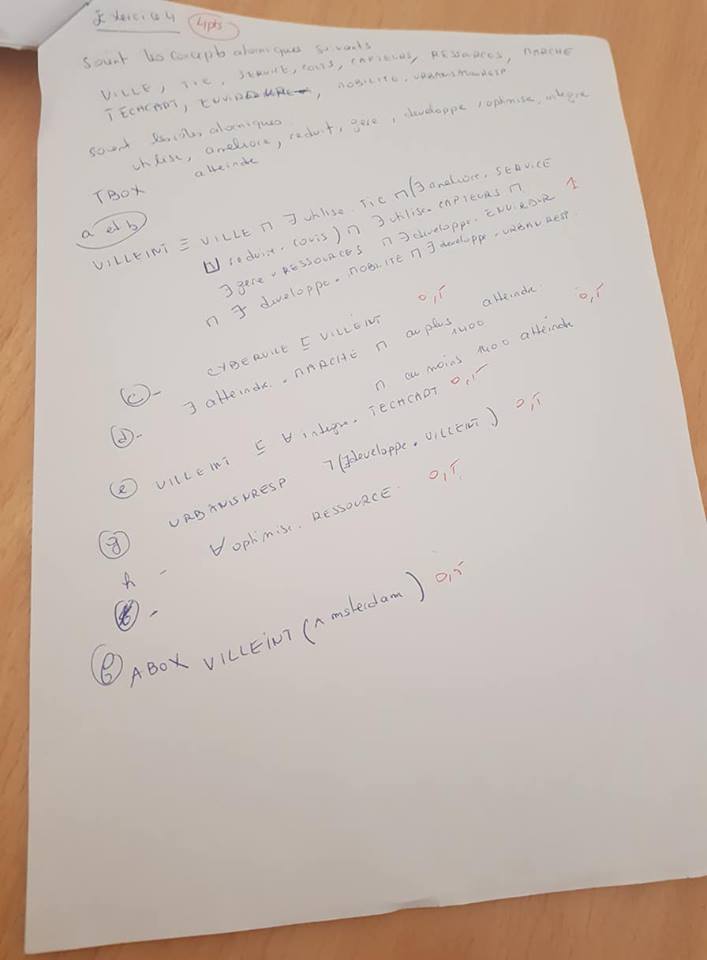 Exercice 4 4pts
Soient les concepts atomiques suivants
VILLE, TIC, SERVICE, COUTS, CAPTEURS, RESSOURCES, MARCHE
TECHCAPT, , MOBILITE, URBANISMRESP
Soient les rôles atomiques
utilise, améliore, reduit, gere, developpe, optimise, intègre
atteindre
TBOX
a et b
VILLEINT ≡ VILLE ⊓ ∃ utilise. TIC ⊓ (∃ améliore. SERVICE
⊔ reduire. COUTS) ⊓ ∃ utilise. CAPTEURS ⊓
∃ gere. RESSOURCES ⊓ ∃ developpe. ENVIRDUR 1
⊓ ∃ developpe. MOBILITE ⊓ ∃ developpe. URBANRESP.
c - CYBERVILLE ⊑ VILLEINT 0,5
d - ∃ atteindre. MARCHÉ ⊓ au plus 1400 atteindre.
⊓ au moins 1400 atteindre 0,5
e VILLEINT ⊑ ∀ integre. TECHCAPT 0,5
g URBANISMRESP ¬(∃developpe. VILLEINT) 0,5
h - ∀ optimise. RESSOURCE. 0,5
-
ABOX VILLEINT (Amsterdam) 0,5